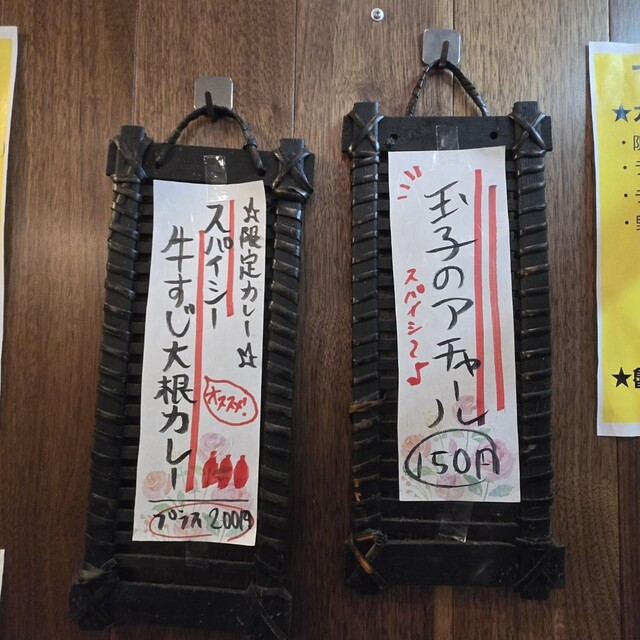 ☆限定カレー☆
スパイシー
牛すじ大根カレー
オススメ!
プラス200円
玉子のアチャール
スパイシ〜♪
150円